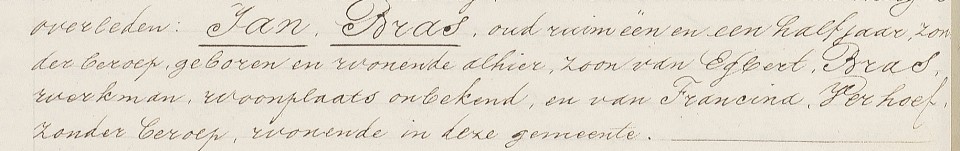 overleden: Jan, Bras, oud ruim één en een half jaar, zon
der beroep, geboren en wonende alhier, zoon van Egbert, Bras,
werkman, woonplaats onbekend, en van Francina, Verhoef,
zonder beroep, wonende in deze gemeente.